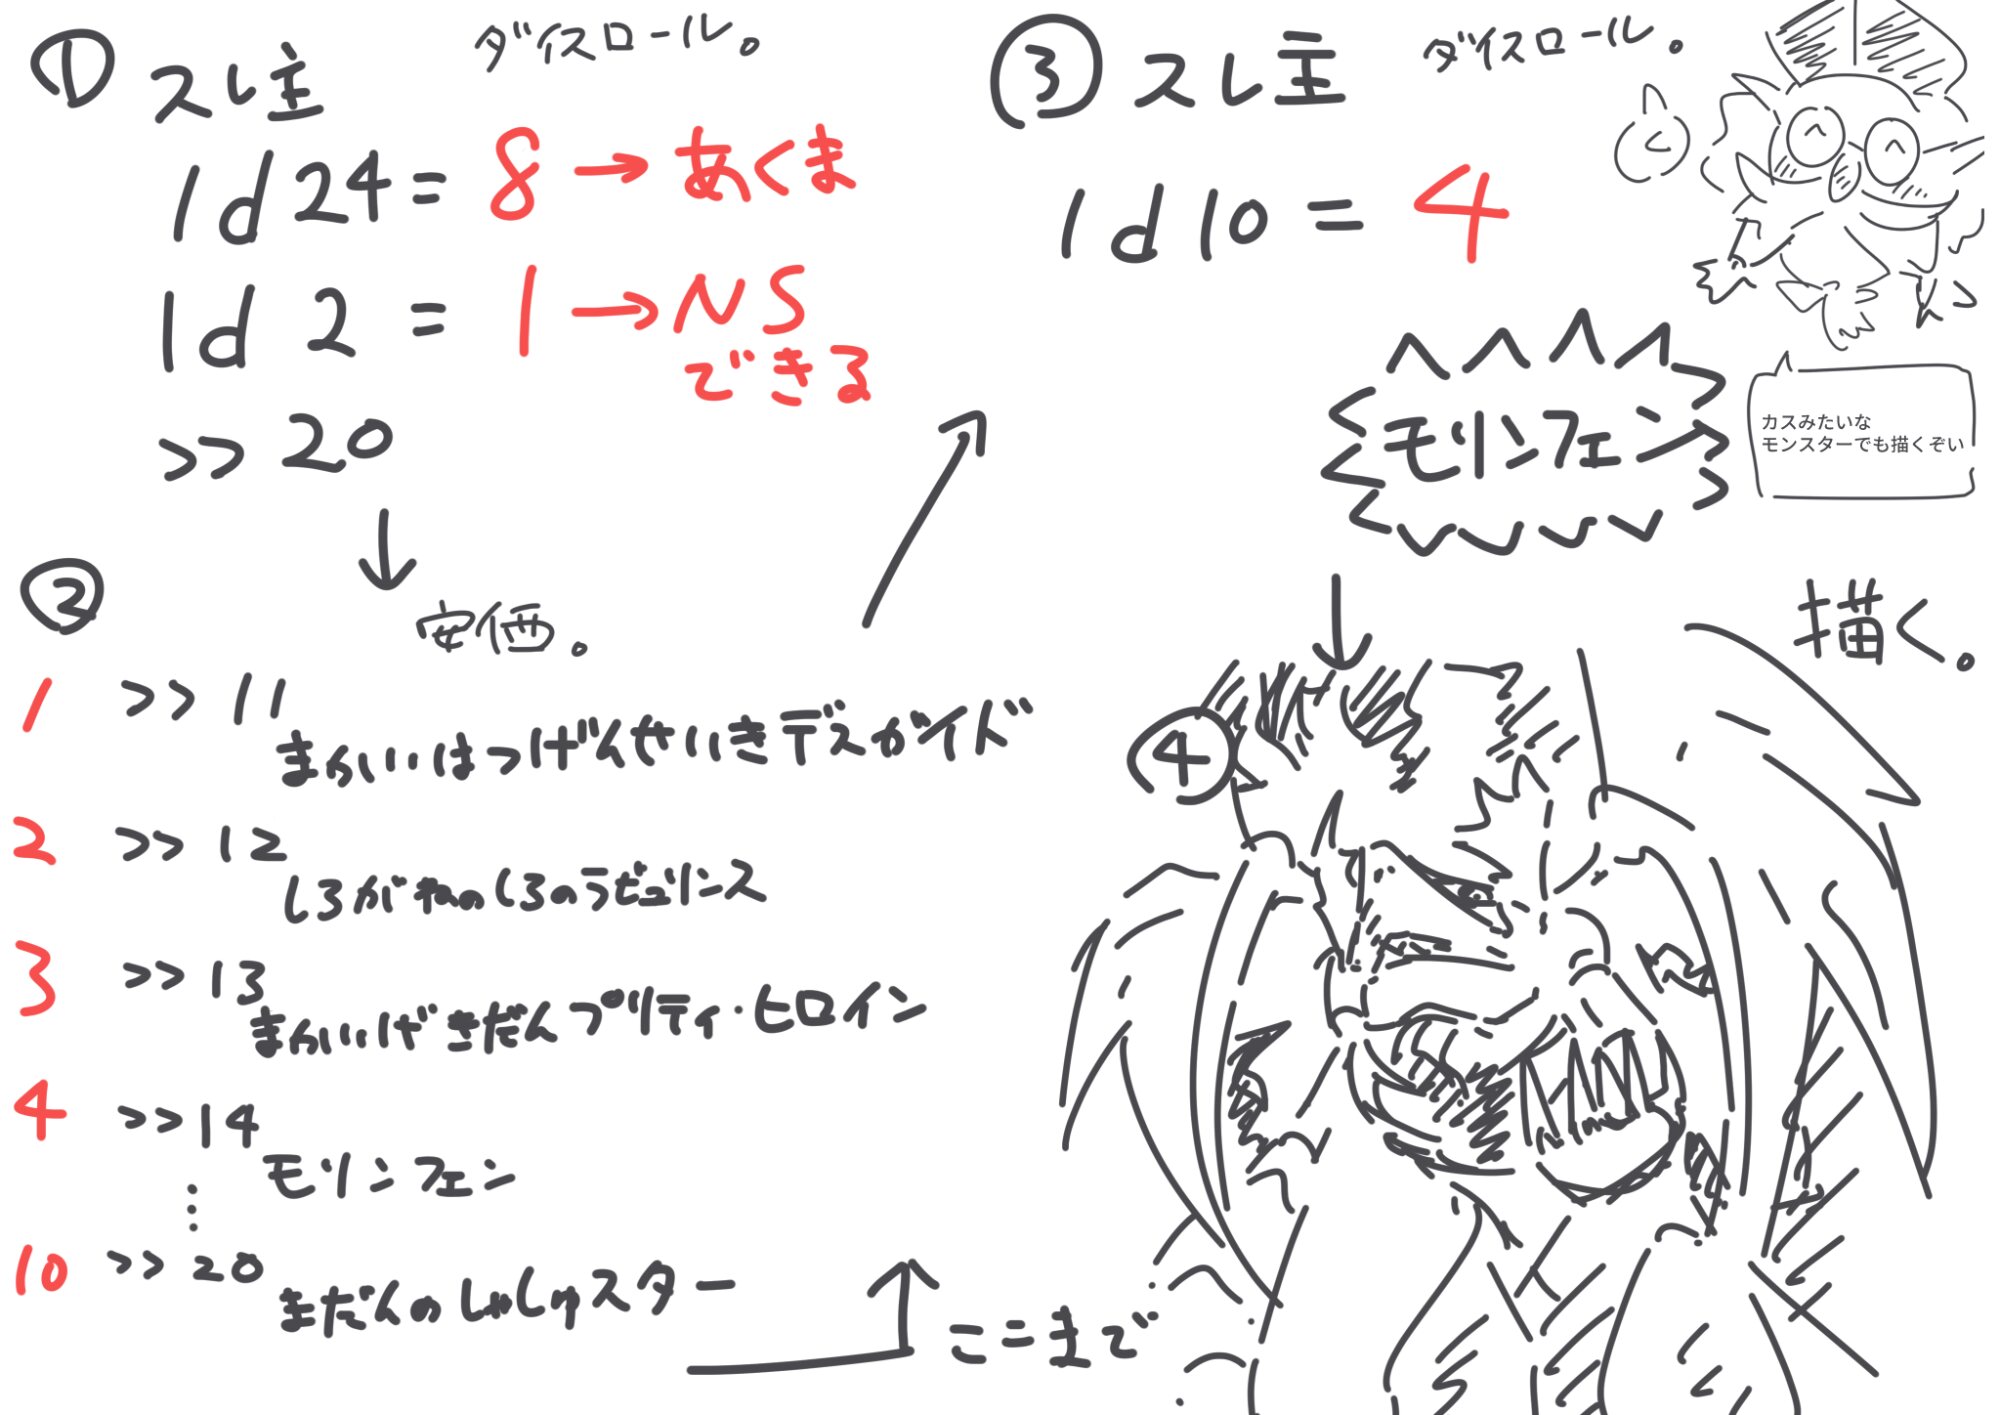 ① スレ主 ダイスロール。
1d24= 8→あくま
1d2 = 1→NS
できる
>>20
安価。
②
1 >>11
まかいはつげんせいきデスガイド
2 >>12
しろがねのしろのラビュリンス
3 >>13
まかいげきだんプリティ・ヒロイン
4 >>14
モリンフェン
⋮
10 >>20
まだんのしゃしゅスター
ここまで
③ スレ主 ダイスロール。
1d10 = 4
モリンフェン
カスみたいな
モンスターでも描くぞい
描く。
④